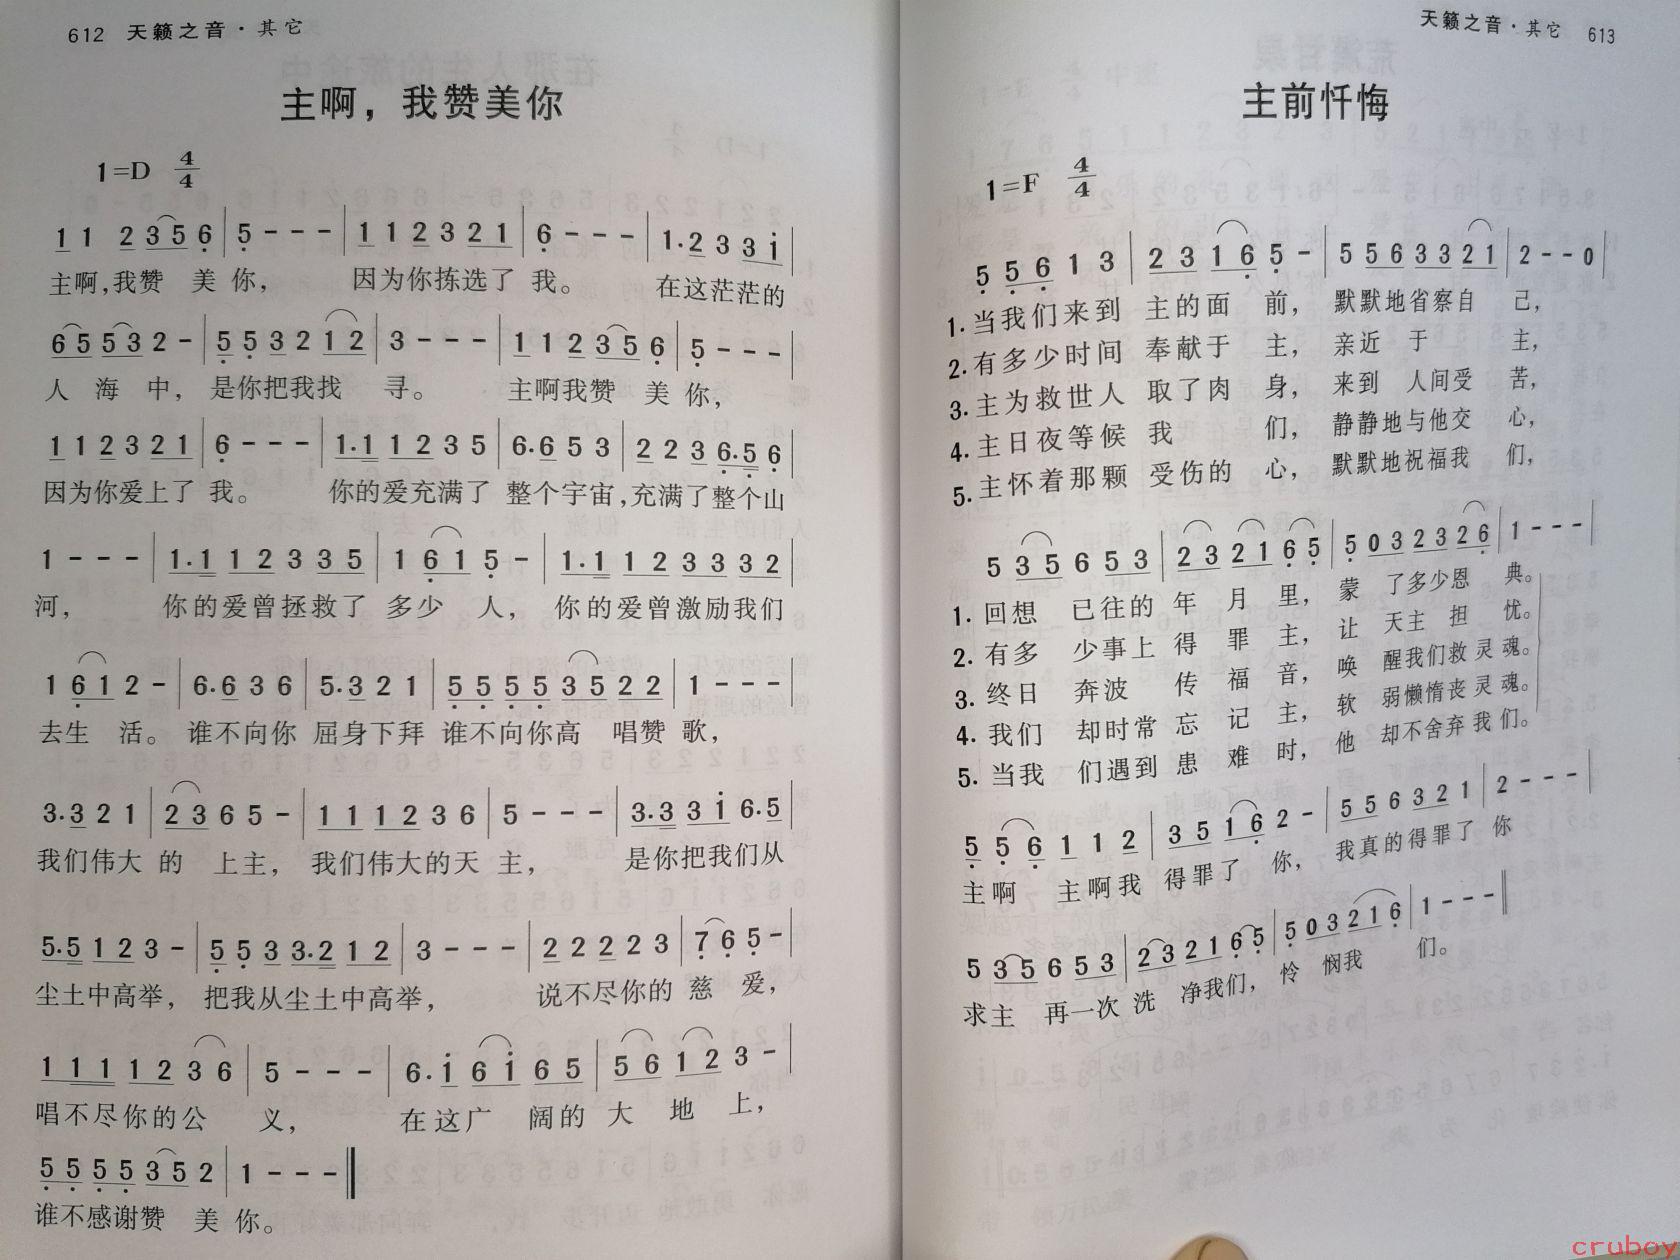 612 天籁之音·其它
主啊，我赞美你
1=D 4/4
1 1 2 3 5 6 | 5 - - - | 1 1 2 3 2 1 | 6 - - - | 1·2 3 3 i |
主啊,我赞 美 你， 因为你拣选了 我。 在这茫茫的
6 5 5 3 2 - | 5 5 3 2 1 2 | 3 - - - | 1 1 2 3 5 6 | 5 - - - |
人 海 中， 是你把我找 寻。 主啊我赞 美 你，
1 1 2 3 2 1 | 6 - - - | 1·1 1 2 3 5 | 6·6 5 3 | 2 2 3 6·5 6 |
因为你爱上了 我。 你的爱充满了 整个宇宙,充满了整个山
1 - - - | 1·1 1 2 3 3 5 | 1 6 1 5 - | 1·1 1 2 3 3 3 2 |
河， 你的爱曾拯救了 多少 人， 你的爱曾激励我们
1 6 1 2 - | 6·6 3 6 | 5·3 2 1 | 5 5 5 5 3 5 2 2 | 1 - - - |
去生 活。 谁不向你 屈身下拜 谁不向你高 唱赞 歌，
3·3 2 1 | 2 3 6 5 - | 1 1 1 2 3 6 | 5 - - - | 3·3 3 i 6·5 |
我们伟大 的 上主， 我们伟大的天 主， 是你把我们从
5·5 1 2 3 - | 5 5 3 3·2 1 2 | 3 - - - | 2 2 2 2 3 | 7 6 5 - |
尘土中高举， 把我从尘土中高举， 说不尽你的 慈 爱，
1 1 1 1 2 3 6 | 5 - - - | 6·i 6 i 6 5 | 5 6 1 2 3 - |
唱不尽你的公 义， 在这广 阔的 大 地 上，
5 5 5 5 3 5 2 | 1 - - - ‖
谁不感谢赞 美 你。
天籁之音·其它 613
主前忏悔
1=F 4/4
5 5 6 1 3 | 2 3 1 6 5 - | 5 5 6 3 3 2 1 | 2 - - 0 |
1.当我们来到 主的面 前， 默默地省察自 己，
2.有多少时间 奉献于 主， 亲近 于 主，
3.主为救世人 取了肉 身， 来到 人间受 苦，
4.主日夜等候 我 们， 静静地与他交 心，
5.主怀着那颗 受伤的 心， 默默地祝福我 们，
5 3 5 6 5 3 | 2 3 2 1 6 5 | 5 0 3 2 3 2 6 | 1 - - - |
1.回想 已往的 年 月 里， 蒙 了多少恩 典。
2.有多 少事上 得 罪 主， 让 天主 担 忧。
3.终日 奔波 传 福 音， 唤 醒我们救灵魂。
4.我们 却时常 忘 记 主， 软 弱懒惰丧灵魂。
5.当我 们遇到 患 难 时， 他 却不舍弃我们。
5 5 6 1 1 2 | 3 5 1 6 2 - | 5 5 6 3 2 1 | 2 - - - |
主啊 主啊我 得罪了 你， 我真的得罪了 你
5 3 5 6 5 3 | 2 3 2 1 6 5 | 5 0 3 2 1 6 | 1 - - - ‖
求主 再一次 洗 净我们， 怜 悯我 们。
cruboy